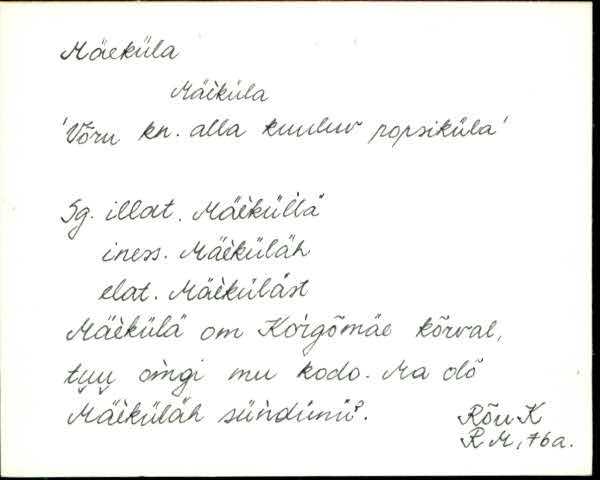 Mäeküla
Mäèküla
'Võru kn. alla kuuluv popsiküla'
Sg. illat. Mäèküllä
iness. Mäèküläh
elat. Mäèküläst
Mäèkülä om Korgõmäe kõrval,
tyy om̀gi mu kodo. Ma olõ
Mäèküläh sündünüʔ.
Rõu K
R M, 76a.